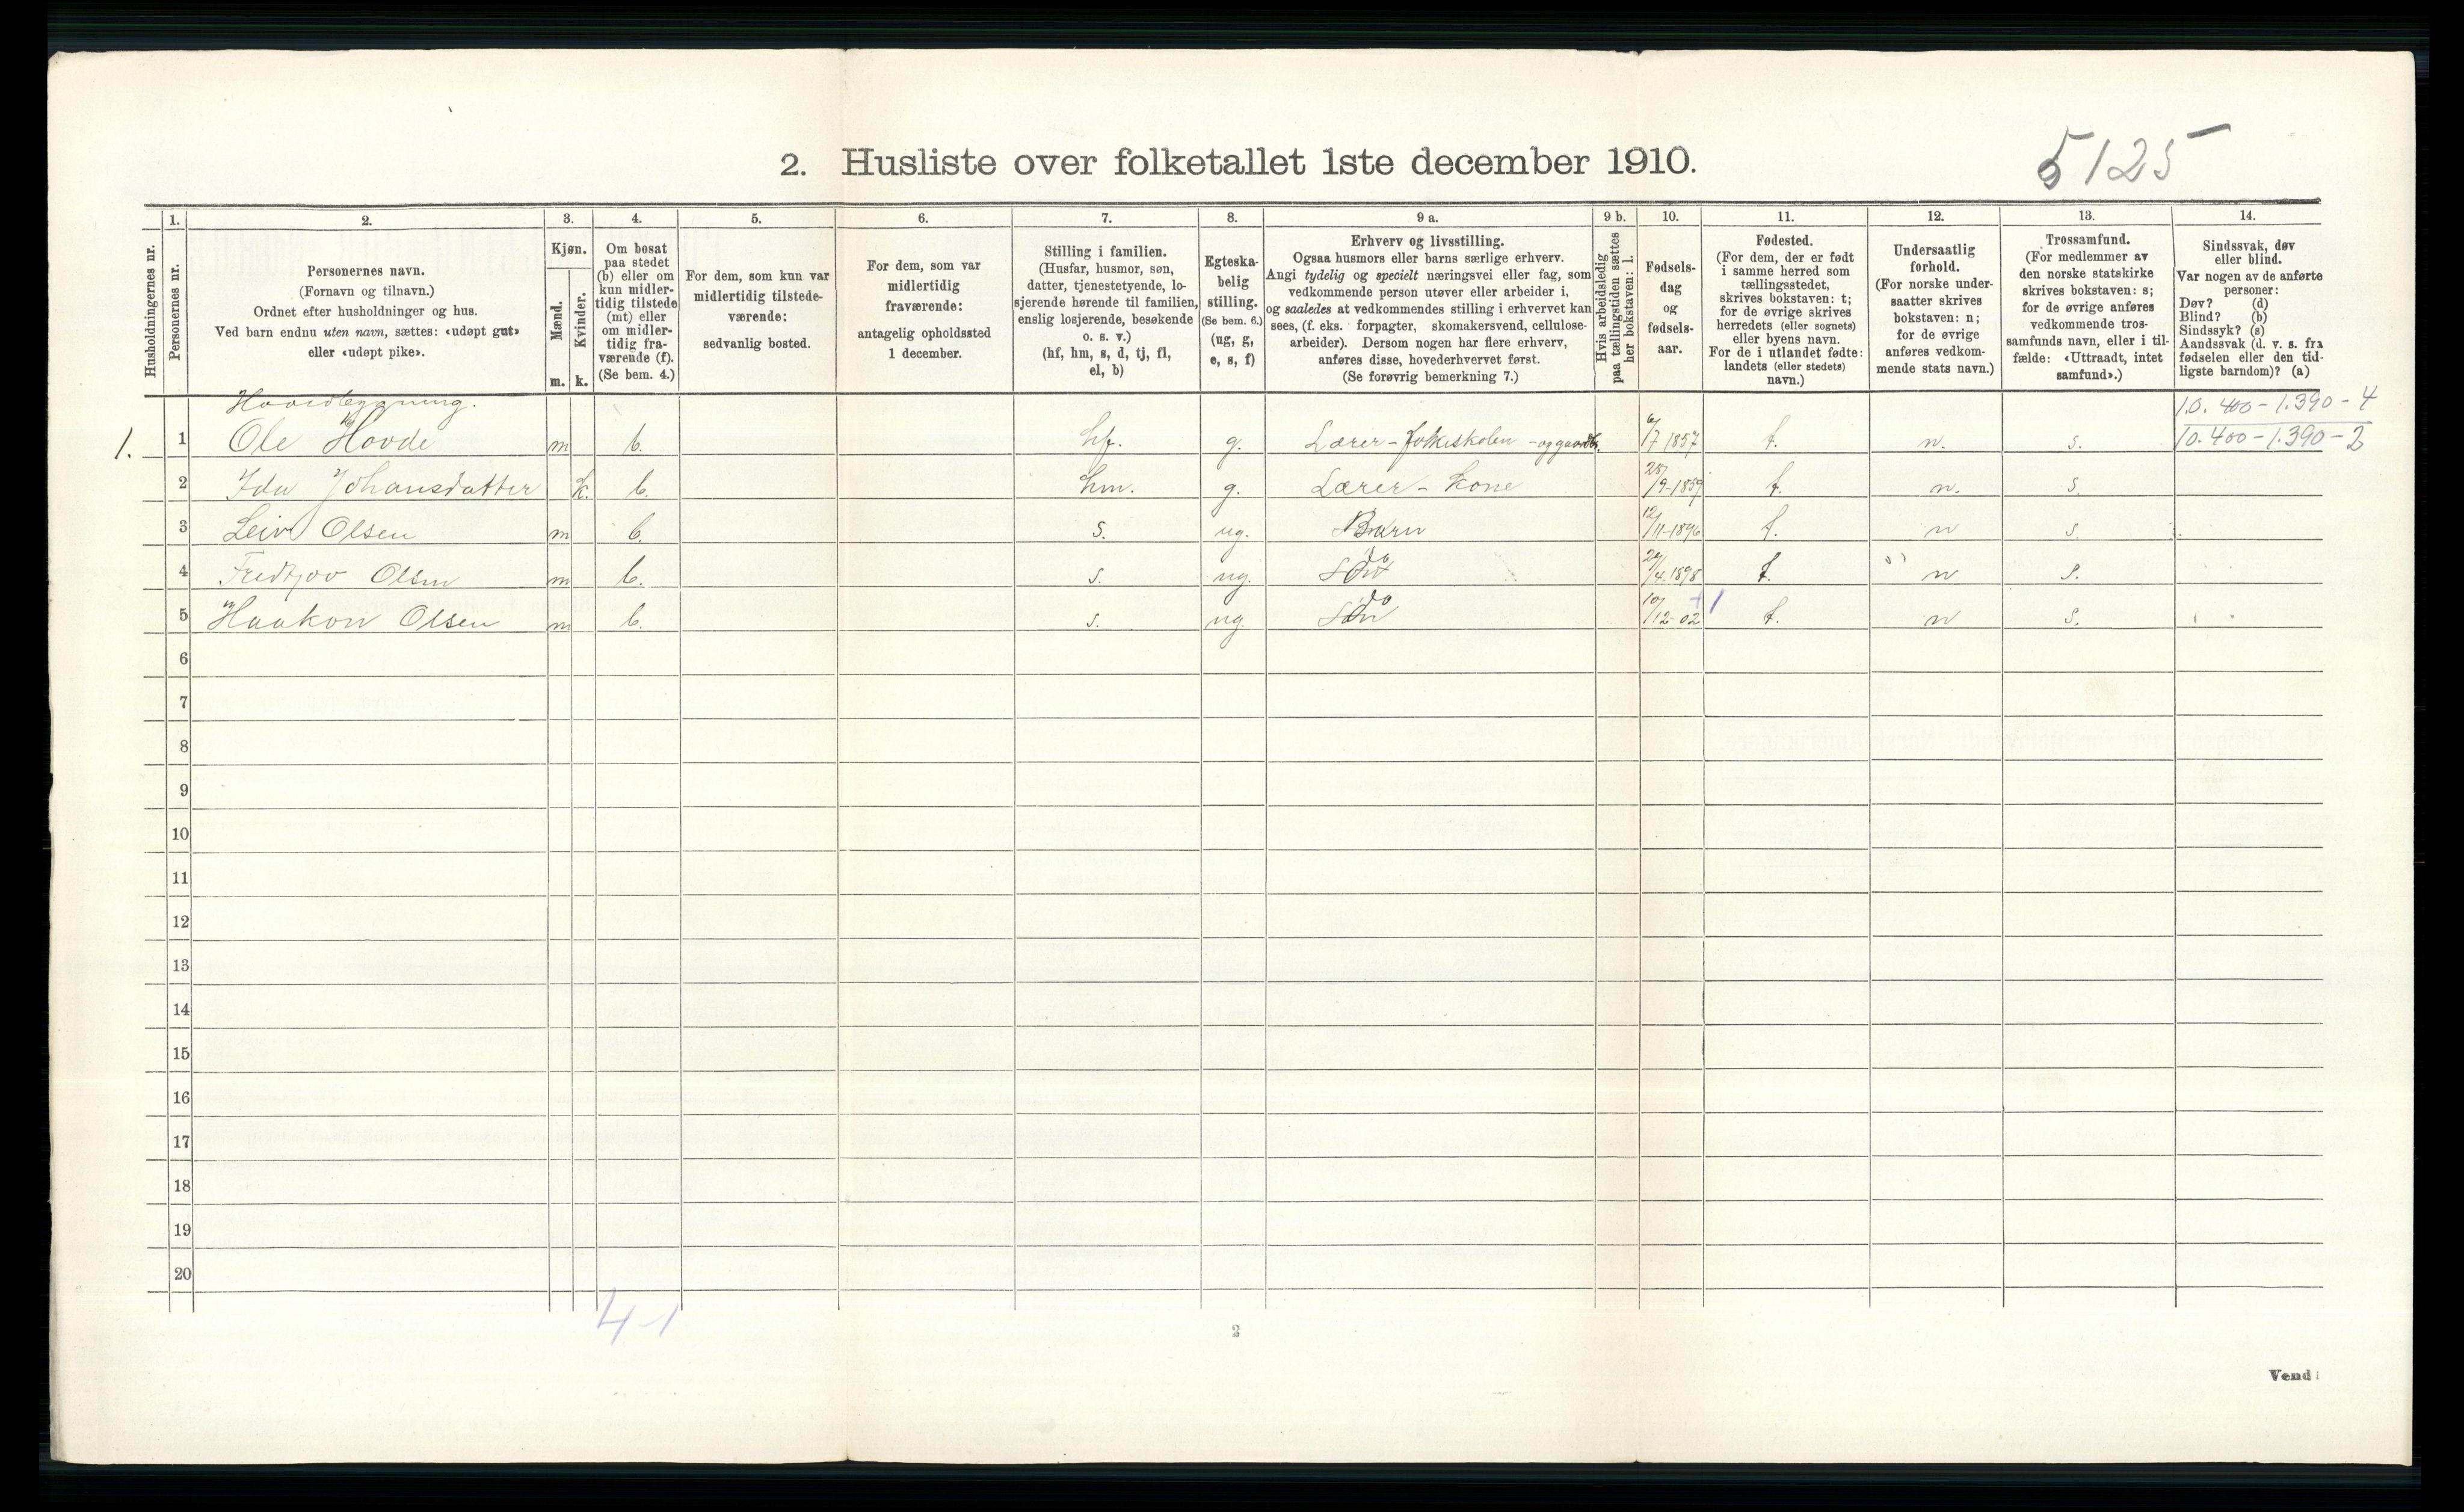 2. Husliste over folketallet 1ste december 1910.
5125
Husholdningernes nr.
1.
Personernes nr.
2.
Personernes navn.
(Fornavn og tilnavn.)
Ordnet efter husholdninger og hus.
Ved barn endnu uten navn, sættes: «udøpt gut»
eller «udøpt pike».
3.
Kjøn.
Mænd.
Kvinder.
m. k.
4.
Om bosat
paa stedet
(b) eller om
kun midler-
tidig tilstede
(mt) eller
om midler-
tidig fra-
værende (f).
(Se bem. 4.)
5.
For dem, som kun var
midlertidig tilstede-
værende:
sedvanlig bosted.
6.
For dem, som var
midlertidig
fraværende:
antagelig opholdssted
1 december.
7.
Stilling i familien.
(Husfar, husmor, søn,
datter, tjenestetyende, lo-
sjerende hørende til familien,
enslig losjerende, besøkende
o. s. v.)
(hf, hm, s, d, tj, fl,
el, b)
8.
Egteska-
belig
stilling.
(Se bem. 6.)
(ug, g,
e, s, f)
9 a.
Erhverv og livsstilling.
Ogsaa husmors eller barns særlige erhverv.
Angi tydelig og specielt næringsvei eller fag, som
vedkommende person utøver eller arbeider i,
og saaledes at vedkommendes stilling i erhvervet kan
sees, (f. eks. forpagter, skomakersvend, cellulose-
arbeider). Dersom nogen har flere erhverv,
anføres disse, hovederhvervet først.
(Se forøvrig bemerkning 7.)
9 b.
Hvis arbeidsledig
paa tællingstiden sættes
her bokstaven: l.
10.
Fødsels-
dag
og
fødsels-
aar.
11.
Fødested.
(For dem, der er født
i samme herred som
tællingsstedet,
skrives bokstaven: t;
for de øvrige skrives
herredets (eller sognets)
eller byens navn.
For de i utlandet fødte:
landets (eller stedets)
navn.)
12.
Undersaatlig
forhold.
(For norske under-
saatter skrives
bokstaven: n;
for de øvrige
anføres vedkom-
mende stats navn.)
13.
Trossamfund.
(For medlemmer av
den norske statskirke
skrives bokstaven: s;
for de øvrige anføres
vedkommende tros-
samfunds navn, eller i til-
fælde: «Uttraadt, intet
samfund».)
14.
Sindssvak, døv
eller blind.
Var nogen av de anførte
personer:
Døv? (d)
Blind? (b)
Sindssyk? (s)
Aandssvak (d. v. s. fra
fødselen eller den tid-
ligste barndom)? (a)
Hovedbygning. 10.400-1.390-4
1. 1 Ole Hovde m b. hf. g. Lærer-folkeskolen - og gaardb. 6/7 1857 t. n. s. 10.400-1.390-2
2 Ida Johansdatter k. b. hm. g. Lærer-kone 28/9-1859 t. n. s.
3 Leiv Olsen m b. s. ug. Barn 12/11-1896 t. n s.
4 Fredtjov Olsen m b. s. ug. do 24/4 1898 t. n s.
5 Haakon Olsen m b. s. ug. do 10/12-02 1 t. n s.
6
7
8
9
10
11
12
13
14
15
16
17
18
19
20
4-1
2
Vend